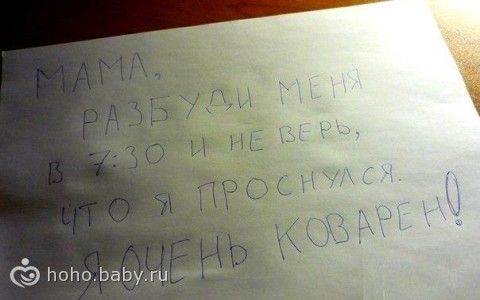 МАМА,
РАЗБУДИ МЕНЯ
В 7:30 И НЕ ВЕРЬ,
ЧТО Я ПРОСНУЛСЯ.
Я ОЧЕНЬ КОВАРЕН!
hoho.baby.ru